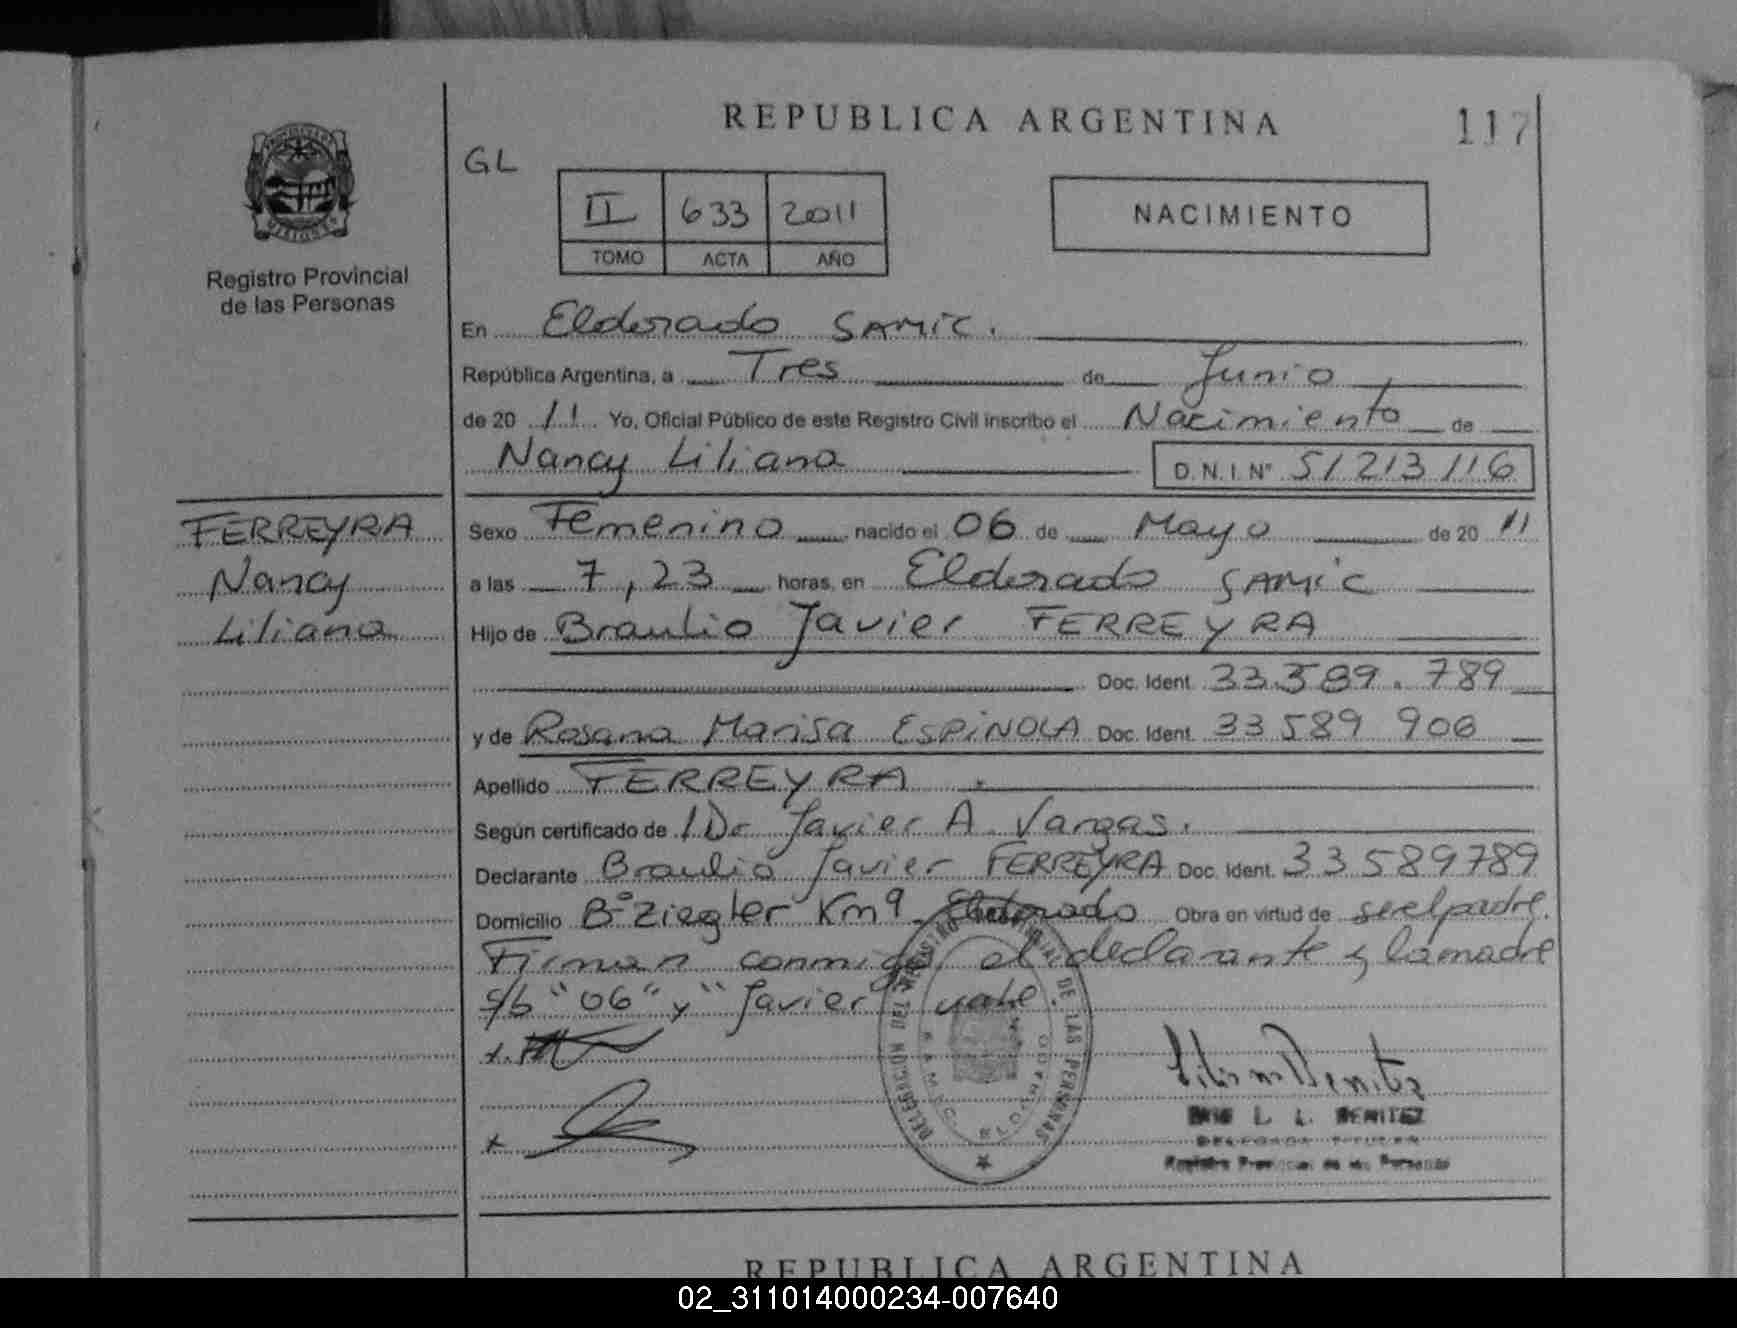 REPUBLICA ARGENTINA
117
GL
II 633 2011
TOMO ACTA AÑO
NACIMIENTO
Registro Provincial
de las Personas
En Eldorado SAMIC.
República Argentina, a Tres de Junio
de 20 11 Yo, Oficial Público de este Registro Civil inscribo el Nacimiento de
Nancy Liliana D.N.I.Nº 51213116
FERREYRA
Nancy
Liliana
Sexo Femenino nacido el 06 de Mayo de 20 11
a las 7,23 horas, en Eldorado SAMIC
Hijo de Braulio Javier FERREYRA
Doc. Ident. 33.589.789
y de Rosana Marisa ESPINOLA Doc. Ident. 33 589 906
Apellido FERREYRA.
Según certificado de 1 Dr Javier A Vargas.
Declarante Braulio Javier FERREYRA Doc. Ident. 33589789
Domicilio Bº Ziegler Km 9 Eldorado Obra en virtud de ser el padre.
Firman conmigo, el declarante y la madre
s/b "06" y "Javier" vale.
DELEGACION DEL REGISTRO PROVINCIAL DE LAS PERSONAS
SAMIC. ELDORADO
L. L. BENITEZ
DELEGADA TITULAR
Registro Provincial de las Personas
REPUBLICA ARGENTINA
02_311014000234-007640